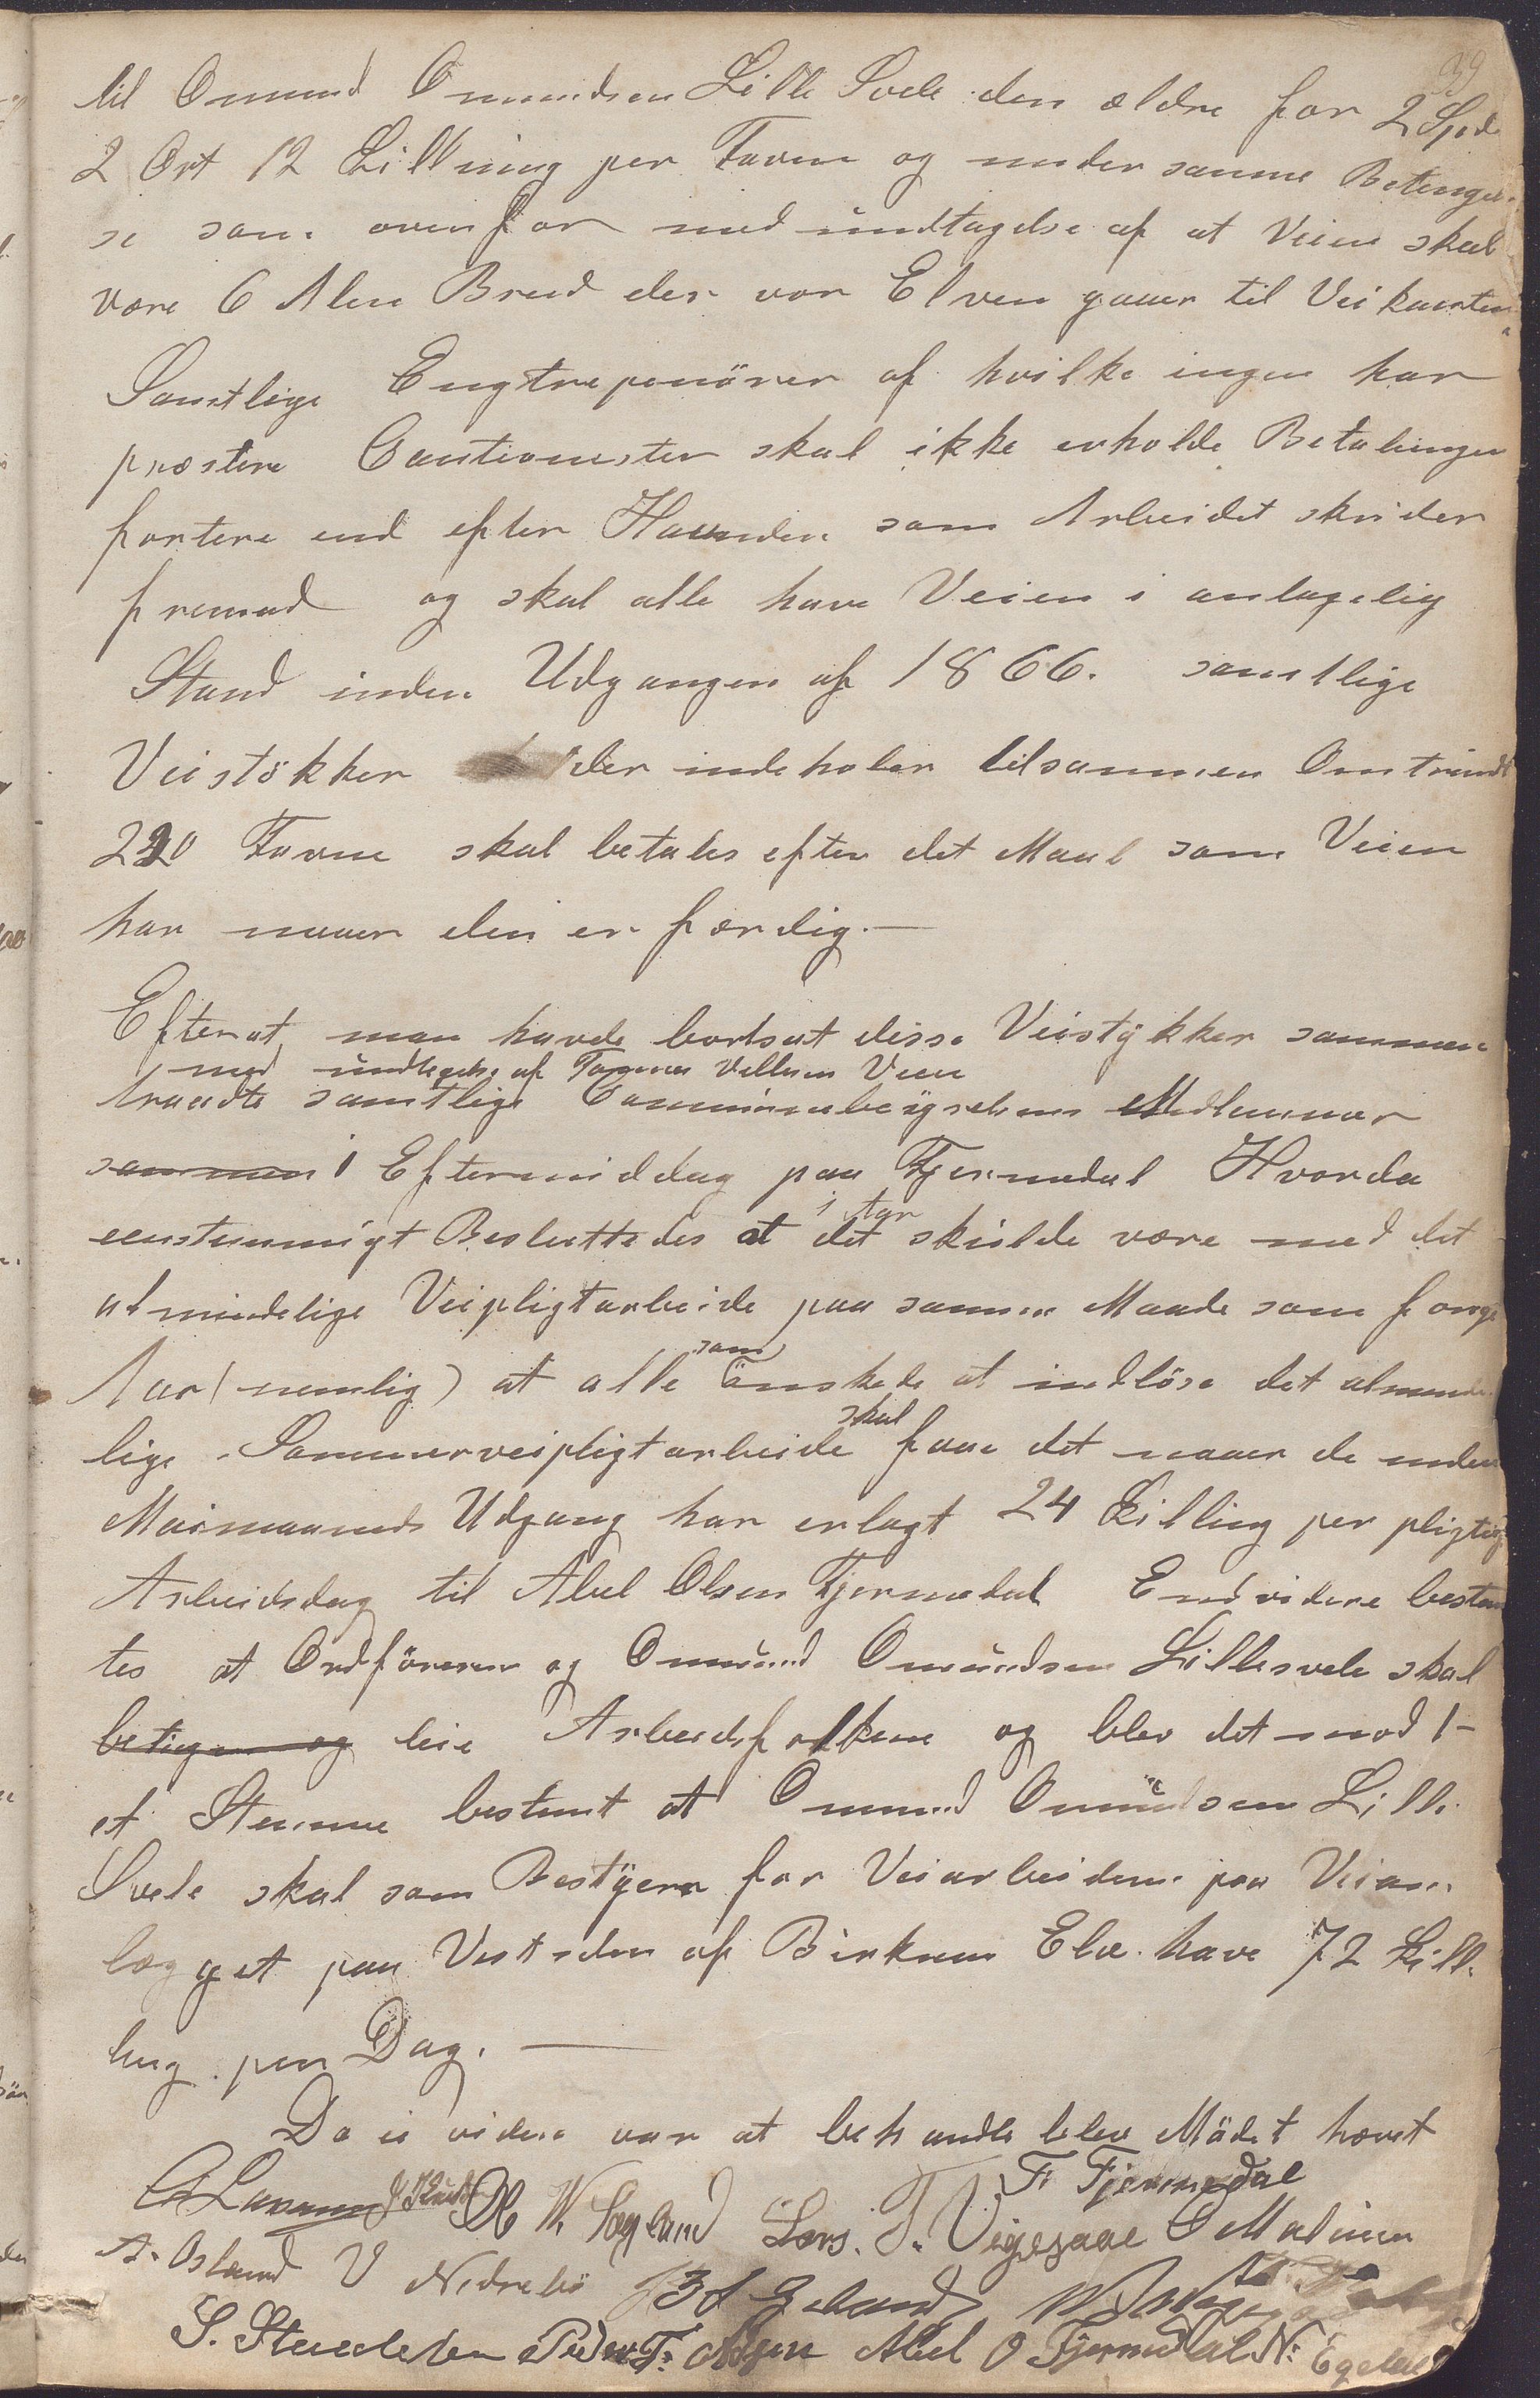 39
til Omund Omundsen Lille Svele den ældre for 2 Spd
2 Ort 12 Skilling per Favn og under samme Betengel-
se som ovenfor med undtagelse af at Veien skal
være 6 Alen Bred der vor Elven gaaer til Veikanten
Samtlige Engtreprenörer af hvilke ingen har
præstere Cautionister skal ikke erholde Betalingen
fortere end efter Haanden som Arbeidet skrider
fremad og skal alle have Veien i antagelig
Stand inden Udgangen af 1866. samtlige
Veistökker der indeholder tilsammen Omtrindt
220 Favne skal betales efter det Maal som Veien
har naaer den er færdig.—
Efterat man havde bortsat disse Veistykker sammen
med undtagelse af Tonnes Vellesen Veen
traadte samtlige Communebestyrelsens Medlemmer
sammen i Eftermiddag paa Fjermedal Hvorda
eenstemmigt Besluttedes at det i Aar skulde være med det
almindelige Veipligtarbeide paa samme Maade som forige
Aar (nemlig) at alle som önskede at indlöse det alminde-
lige Sommerveipligtarbeide skal faae det naaer de inden
Maimaaneds Udgang har erlagt 24 Skilling per pligtig
Arbeidsdag til Abel Olsen Fjermedal Endvidere bestem
tes at Ordföreren og Omund Omundsen Lillesvele skal
betinge og leie Arbeidsfolkene og blev det mod 1-
et Stemme bestemt at Omund Omundsen Lille
Svele skal som Bestyerer for Veiarbeidene paa Veian-
lægget paa Vestsiden af Birkrem Elv have 72 Skil-
ling per Dag. —
Da ei videre var at behandle blev Mödet hævet
F. Fjermedal
W. Sægland Lars. T. Vigesaae O Malmen
A. Osland V Nedrebö Egeland
S. Stuedelen Peder T. Abel O Fjermedal N. Egelan